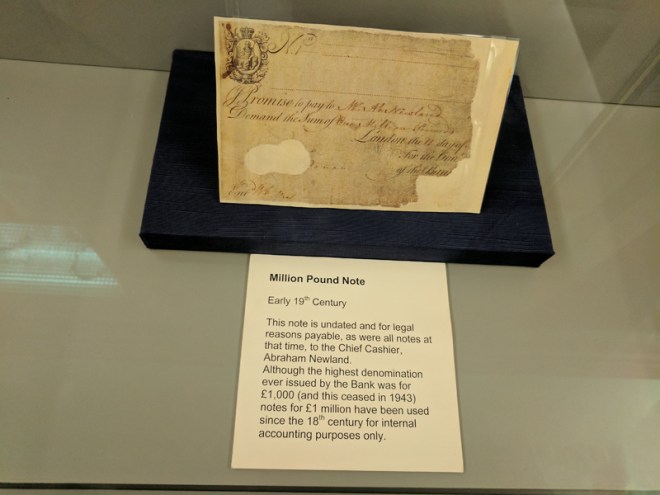 No
I Promise to pay to Mr. Ab. Newland
Demand the Sum of One Million Pounds
London the 11 day of
For the Gov.
of the Bank
Million Pound Note
Early 19th Century
This note is undated and for legal
reasons payable, as were all notes at
that time, to the Chief Cashier,
Abraham Newland.
Although the highest denomination
ever issued by the Bank was for
£1,000 (and this ceased in 1943)
notes for £1 million have been used
since the 18th century for internal
accounting purposes only.